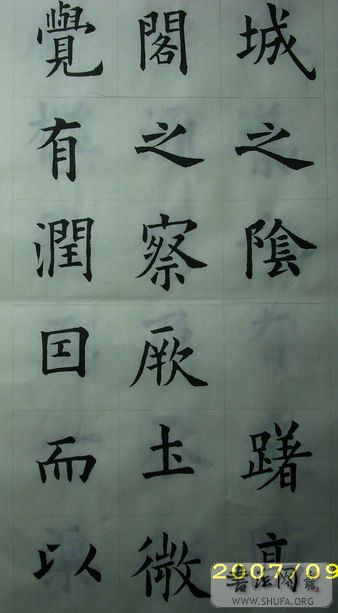 城之陰躇高
閣之察厥土微
覺有潤因而以
2007/09
書法网
WWW.SHUFA.ORG